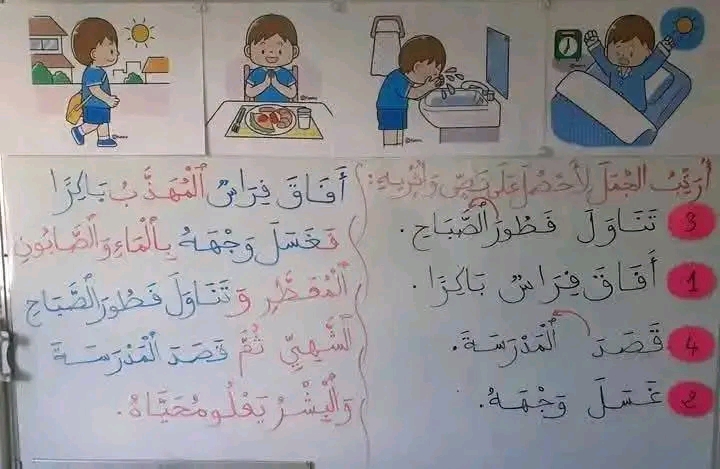 أُرَتِّبُ الجُمَلَ لِأَحْصُلَ عَلَى نَصٍّ وَأُثْرِيهِ:
3 تَنَاوَلَ فَطُورَ الصَّبَاحِ.
1 أَفَاقَ فِرَاسٌ بَاكِرًا.
4 قَصَدَ الْمَدْرَسَةَ.
2 غَسَلَ وَجْهَهُ.
أَفَاقَ فِرَاسٌ الْمُهَذَّبُ بَاكِرًا
فَغَسَلَ وَجْهَهُ بِالْمَاءِ وَالصَّابُونِ
الْمُعَطَّرِ وَتَنَاوَلَ فَطُورَ الصَّبَاحِ
الشَّهِيِّ ثُمَّ قَصَدَ الْمَدْرَسَةَ
وَالْبِشْرُ يَعْلُو مُحَيَّاهُ.